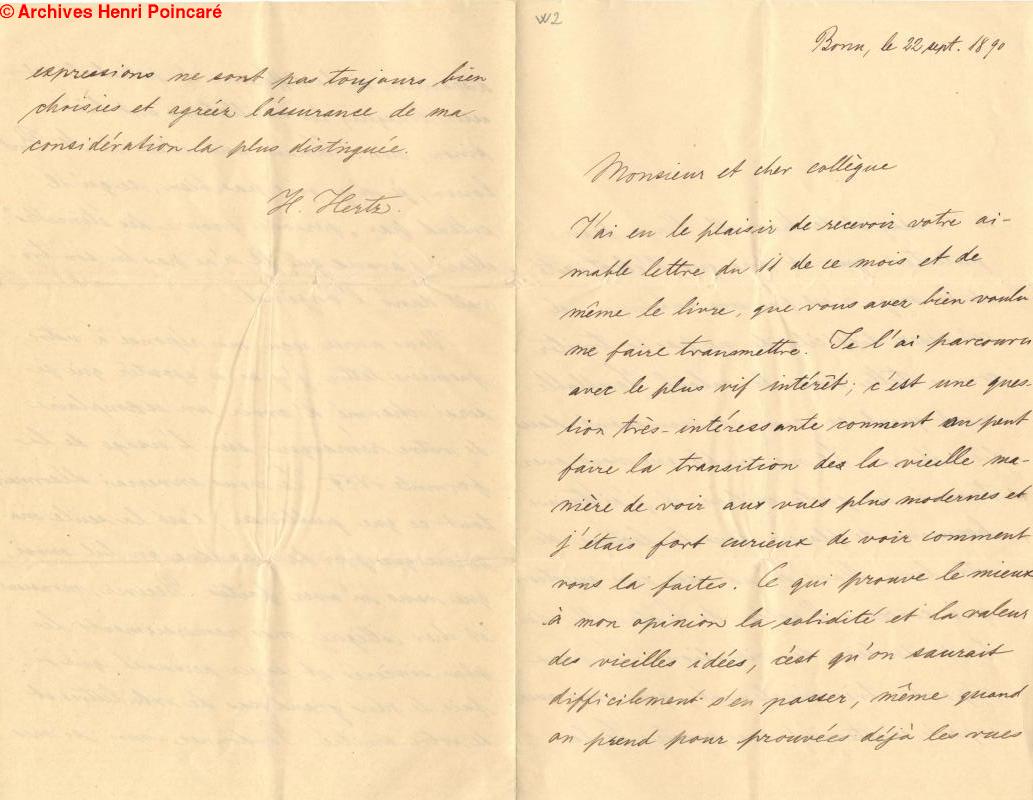 © Archives Henri Poincaré
expressions ne sont pas toujours bien
choisies et agréer l'assurance de ma
considération la plus distinguée.
H. Hertz.
W2
Bonn, le 22 sept. 1890
Monsieur et cher collègue
J'ai eu le plaisir de recevoir votre ai-
mable lettre du 11 de ce mois et de
même le livre, que vous avez bien voulu
me faire transmettre. Je l'ai parcouru
avec le plus vif intérêt; c'est une ques-
tion très-intéressante comment on peut
faire la transition de la vieille ma-
nière de voir aux vues plus modernes et
j'étais fort curieux de voir comment
vous la faites. Ce qui prouve le mieux
à mon opinion la solidité et la valeur
des vieilles idées, c'est qu'on saurait
difficilement s'en passer, même quand
on prend pour prouvées déjà les vues